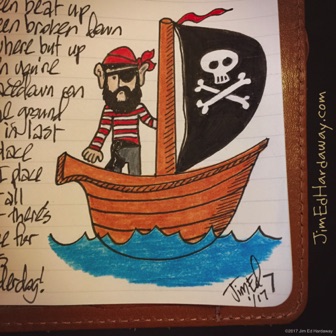 een beat up
een broken down
where but up
n you're
acedown on
he ground
in last
lace
place
all
there's
for
JimEd
1/17
JimEdHardaway.com
©2017 Jim Ed Hardaway